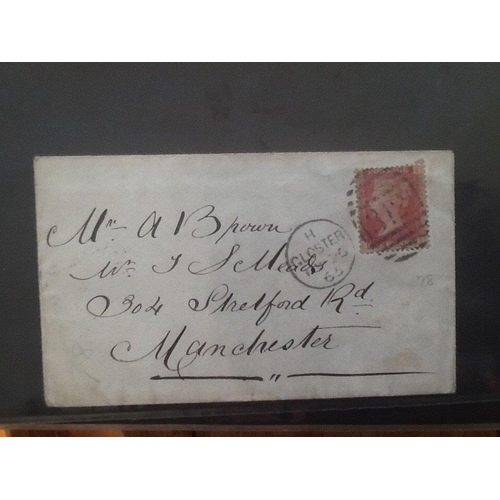 Mr A Brown
Mr J S Mead
304 Stretford Rd
Manchester
H
GLOSTER
65